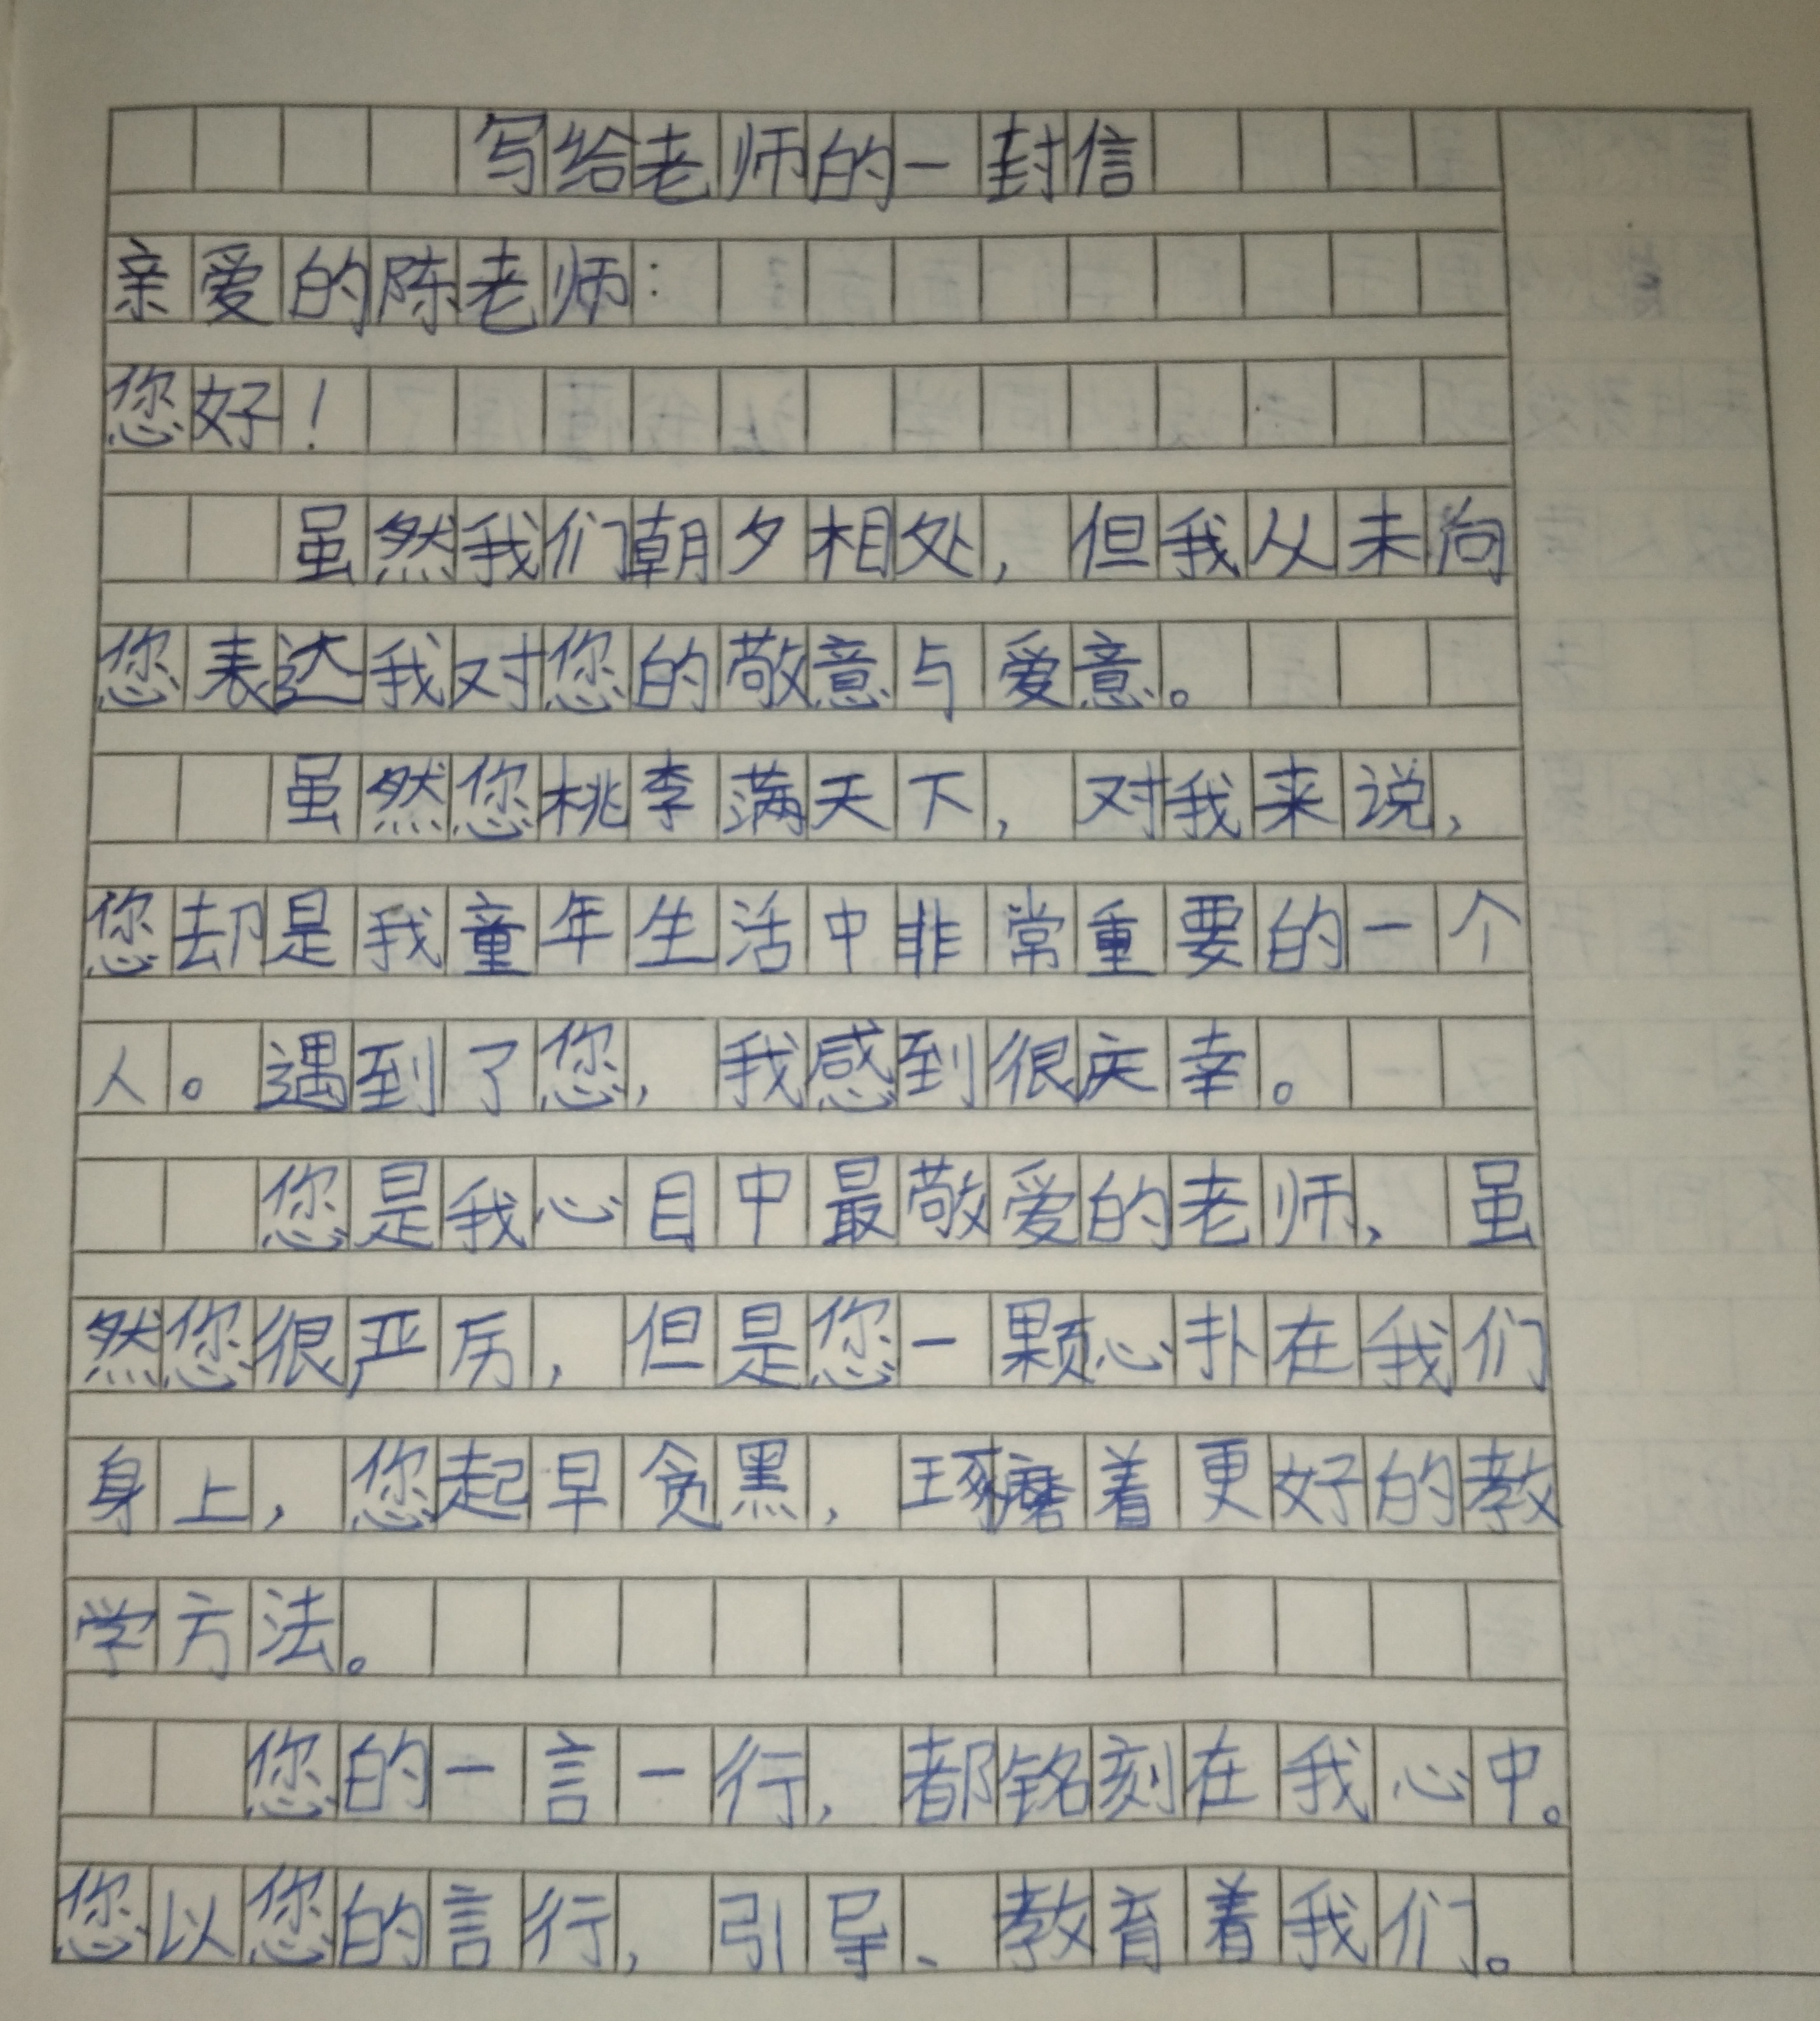 写给老师的一封信
亲爱的陈老师：
您好！
虽然我们朝夕相处，但我从未向
您表达我对您的敬意与爱意。
虽然您桃李满天下，对我来说，
您却是我童年生活中非常重要的一个
人。遇到了您，我感到很庆幸。
您是我心目中最敬爱的老师，虽
然您很严厉，但是您一颗心扑在我们
身上，您起早贪黑，琢磨着更好的教
学方法。
您的一言一行，都铭刻在我心中。
您以您的言行，引导、教育着我们。